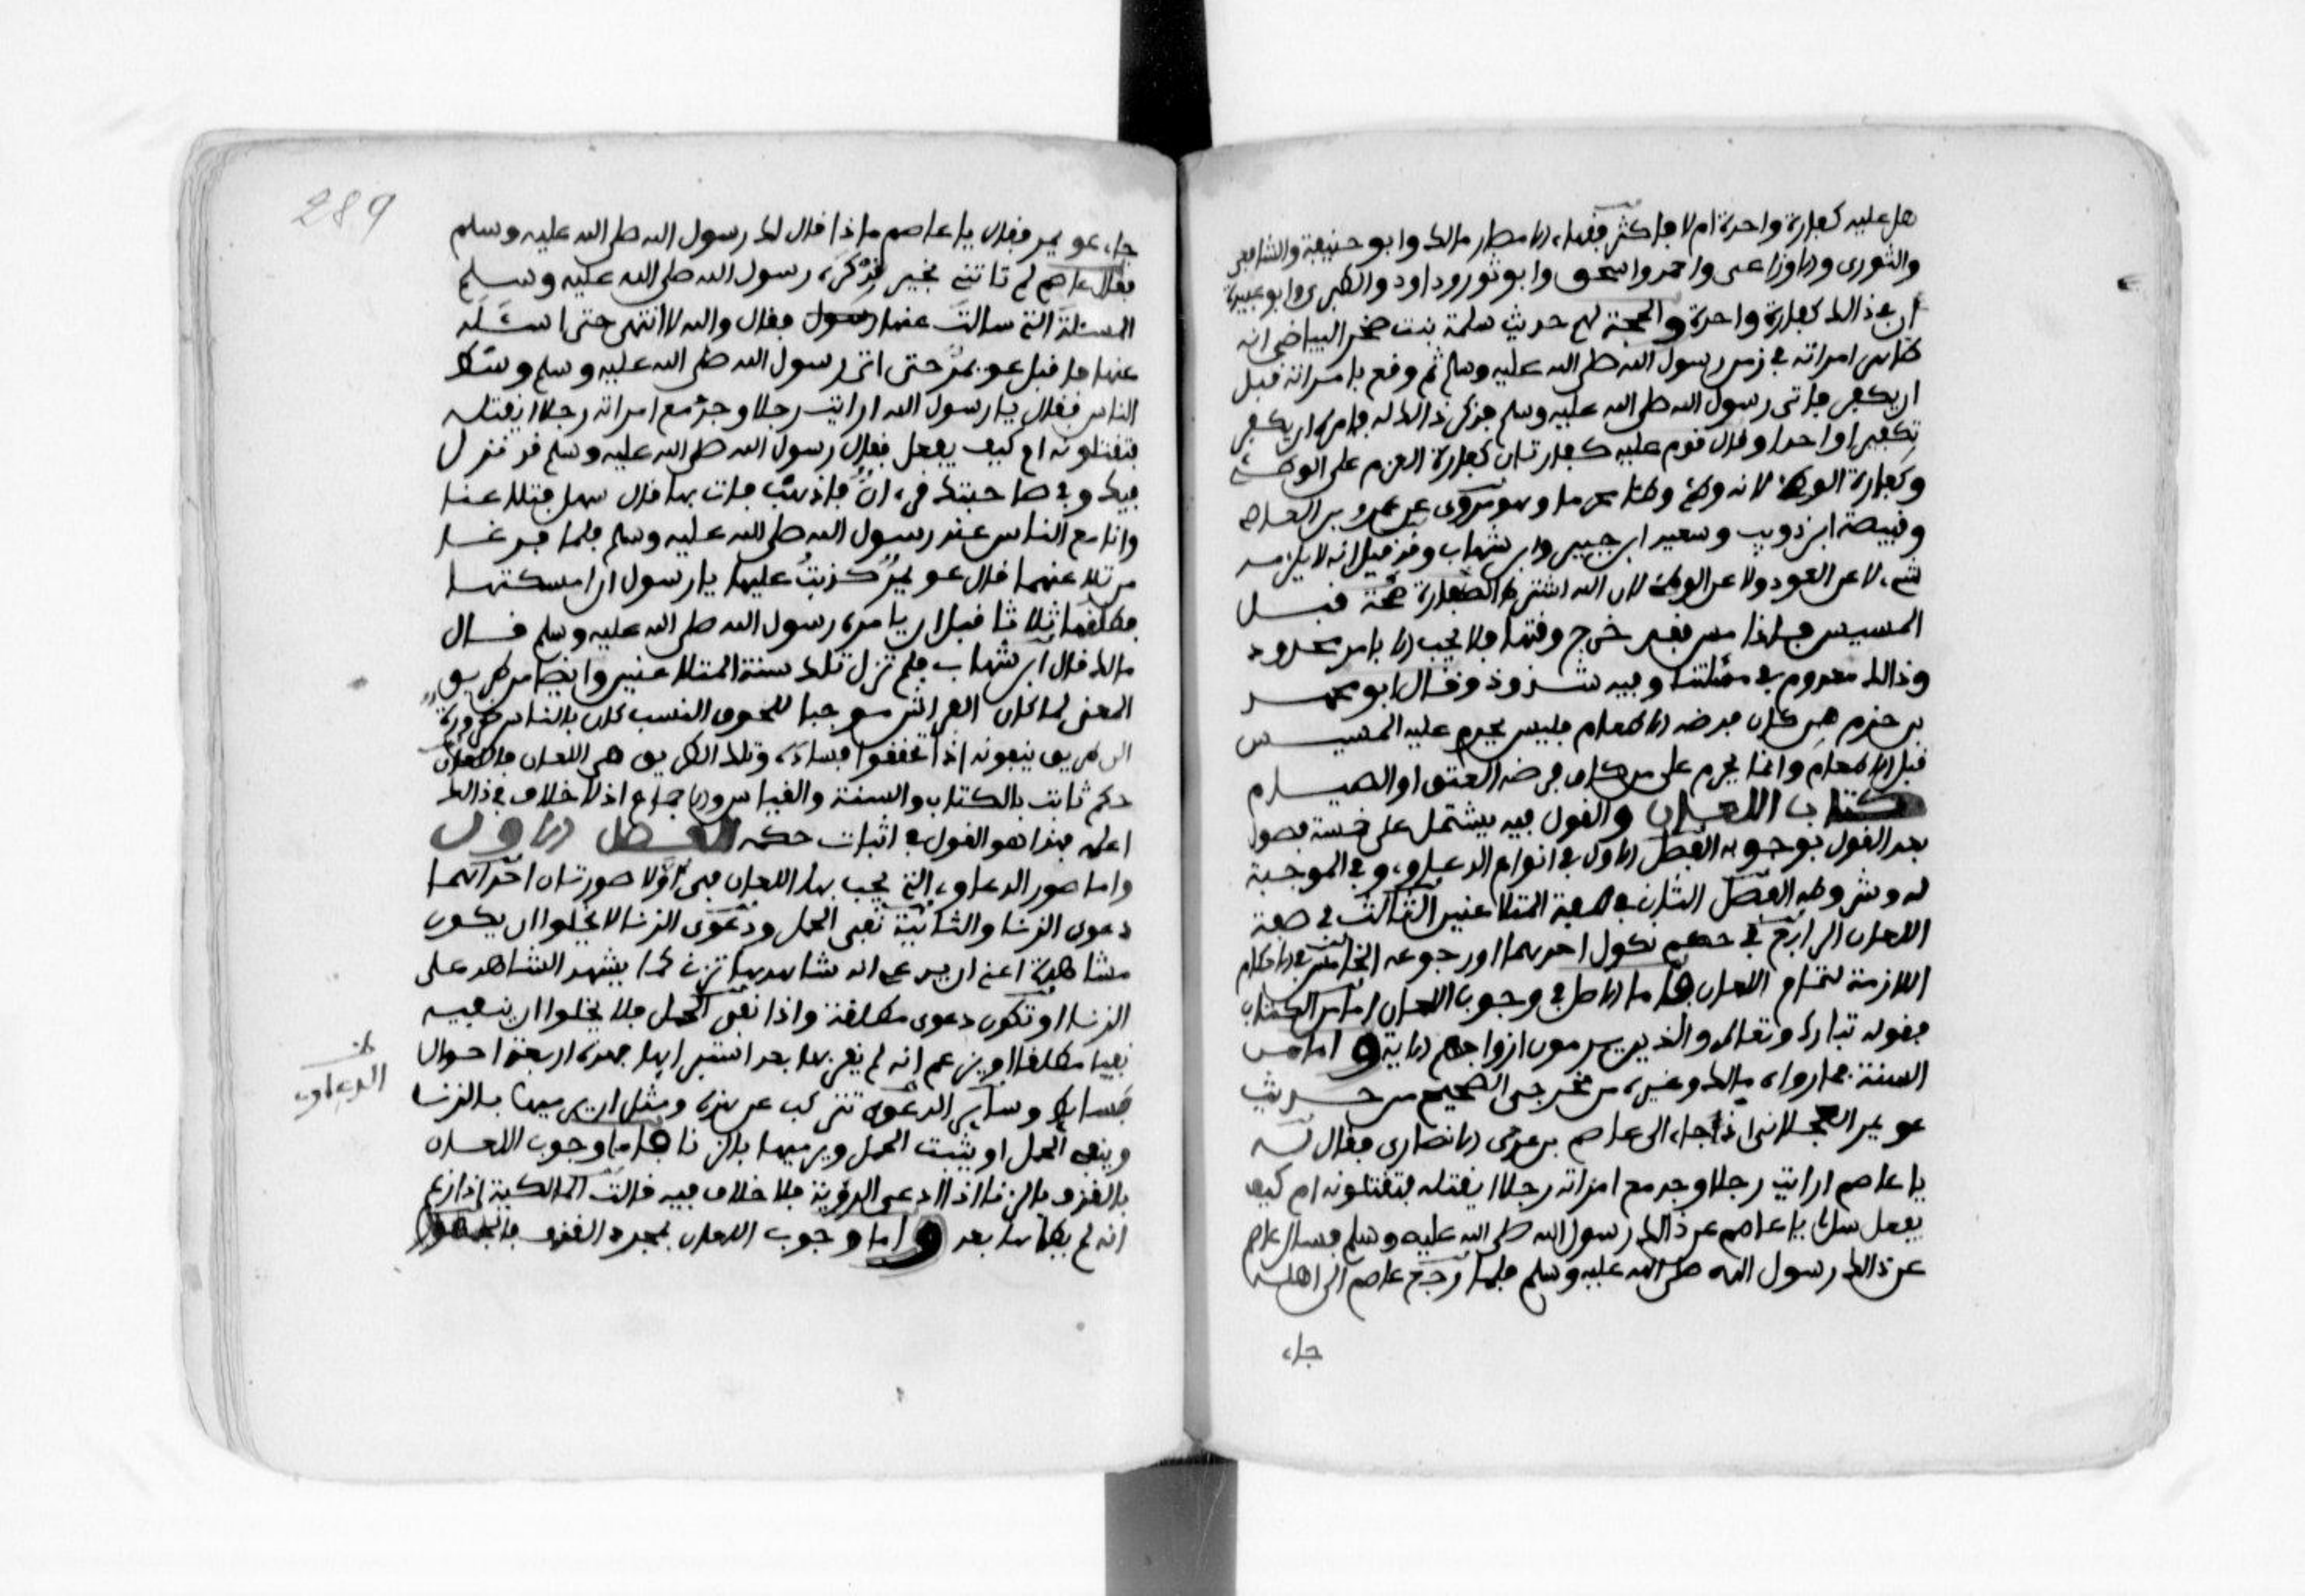 هل عليه كفارة واحدة ام لا فاكثر فقهاء الامصار مالك وابو حنيفة والشافعي
والثوري والاوزاعي واحمد واسحق وابو ثور وداود والطبري وابو عبيدة
ان في ذالك كفارة واحدة والحجة لهم حديث سلمة بنت صخر البياضي انه
ظاهر امراته في زمن رسول الله صلى الله عليه وسلم ثم وقع بامراته قبل
ان يكفر فاتى رسول الله صلى الله عليه وسلم فذكر ذالك له فامره ان يكفر
تكفيرا واحدا وقال قوم عليه كفارتان كفارة العزم على الوطئ
وكفارة الوطئ لانه وطئ وطئا محرما وهو مروى عن عمرو بن العاص
وقبيصة ابن ذويب وسعيد ابن جبير وابن شهاب وقد قيل انه لا يلزمه
شيء لا عن العود ولا عن الوطئ لان الله اشترط الكفارة صحة قبل
المسيس فاذا مس فقد خرج وقتها فلا يجب الا بامر مجدد
وذالك معدوم في مسئلتنا وفيه شذوذ وقال ابو محمد
بن حزم من كان فرضه الاطعام فليس يحرم عليه المسيس
قبل الاطعام وانما يحرم على من كان فرضه العتق او الصيام
كتاب اللعان والقول فيه يشتمل على خمسة فصول
بعد القول بوجوبه الفصل الاول في انواع الدعاوي وفي الموجبة
له وشروطه الفصل الثان في صفة المتلاعنين الثالث في صفة
اللعان الرابع في حكم نكول احدهما او رجوعه الخامس في الاحكام
اللازمة لتمام اللعان فاما الاصل في وجوب اللعان اما من الكتاب
فقوله تبارك وتعالى والذين يرمون ازواجهم الاية واما من
السنة فما رواه مالك وغيره من مخرجي الصحيح من حديث
عويمر العجلاني اذ جاء الى عاصم بن عدي الانصاري فقال له
يا عاصم ارايت رجلا وجد مع امراته رجلا ايقتله فتقتلونه ام كيف
يفعل سل لي يا عاصم عن ذالك رسول الله صلى الله عليه وسلم فسال عاصم
عن ذالك رسول الله صلى الله عليه وسلم فلما رجع عاصم الى اهله
جاء
289
جاء عويمر فقال يا عاصم ماذا قال لك رسول الله صلى الله عليه وسلم
فقال عاصم لم تاتني بخير قد كره رسول الله صلى الله عليه وسلم
المسئلة التي سالت عنها رسول فقال والله لا انتهى حتى اسئله
عنها فاقبل عويمر حتى اتى رسول الله صلى الله عليه وسلم وسط
الناس فقال يا رسول الله ارايت رجلا وجد مع امراته رجلا ايقتله
فتقتلونه ام كيف يفعل فقال رسول الله صلى الله عليه وسلم قد نزل
فيك وفي صاحبتك قرءان فاذهب فات بها قال سهل فتلاعنا
وانا مع الناس عند رسول الله صلى الله عليه وسلم فلما فرغا
من تلاعنهما قال عويمر كذبت عليها يا رسول ان امسكتها
فطلقها ثلاثا قبل ان يامره رسول الله صلى الله عليه وسلم قال
مالك قال ابن شهاب فلم تزل تلك سنة المتلاعنين وايضا من طريق
المعنى لما كان الفراش موجبا للحوق النسب كان بالناس ضرورة
الى طريق ينفونه اذا تحققوا فساده وتلك الطريق هي اللعان فاللعان
حكم ثابت بالكتاب والسنة والقياس والاجماع اذ لا خلاف في ذالك
اعلمه فهذا هو القول في اثبات حكمه الفصل الاول
واما صور الدعاوي التي يجب بها اللعان فهي اولا صورتان احداهما
دعوى الزنا والثانية نفي الحمل ودعوى الزنا لا يخلوا ان يكون
مشاهدة اعني ان يدعي انه شاهدها تزني كما يشهد الشاهد على
الزنا او تكون دعوى مطلقة واذا نفى الحمل فلا يخلوا ان ينفيه
نفيا مطلقا او يزعم انه لم يقربها بعد استبرايها فهذه اربعة احوال
بسايط وساير الدعوي تتركب عن هذه ومثل ان يرميها بالزنا
الدعاوي
وينفي الحمل او يثبت الحمل ويرميها بالزنا فاما وجوب اللعان
بالقذف بالزنا اذا ادعى الروية فلا خلاف فيه قالت المالكية اذا زعم
انه لم يطاها بعد واما وجوب اللعان بمجرد القذف فالجمهور